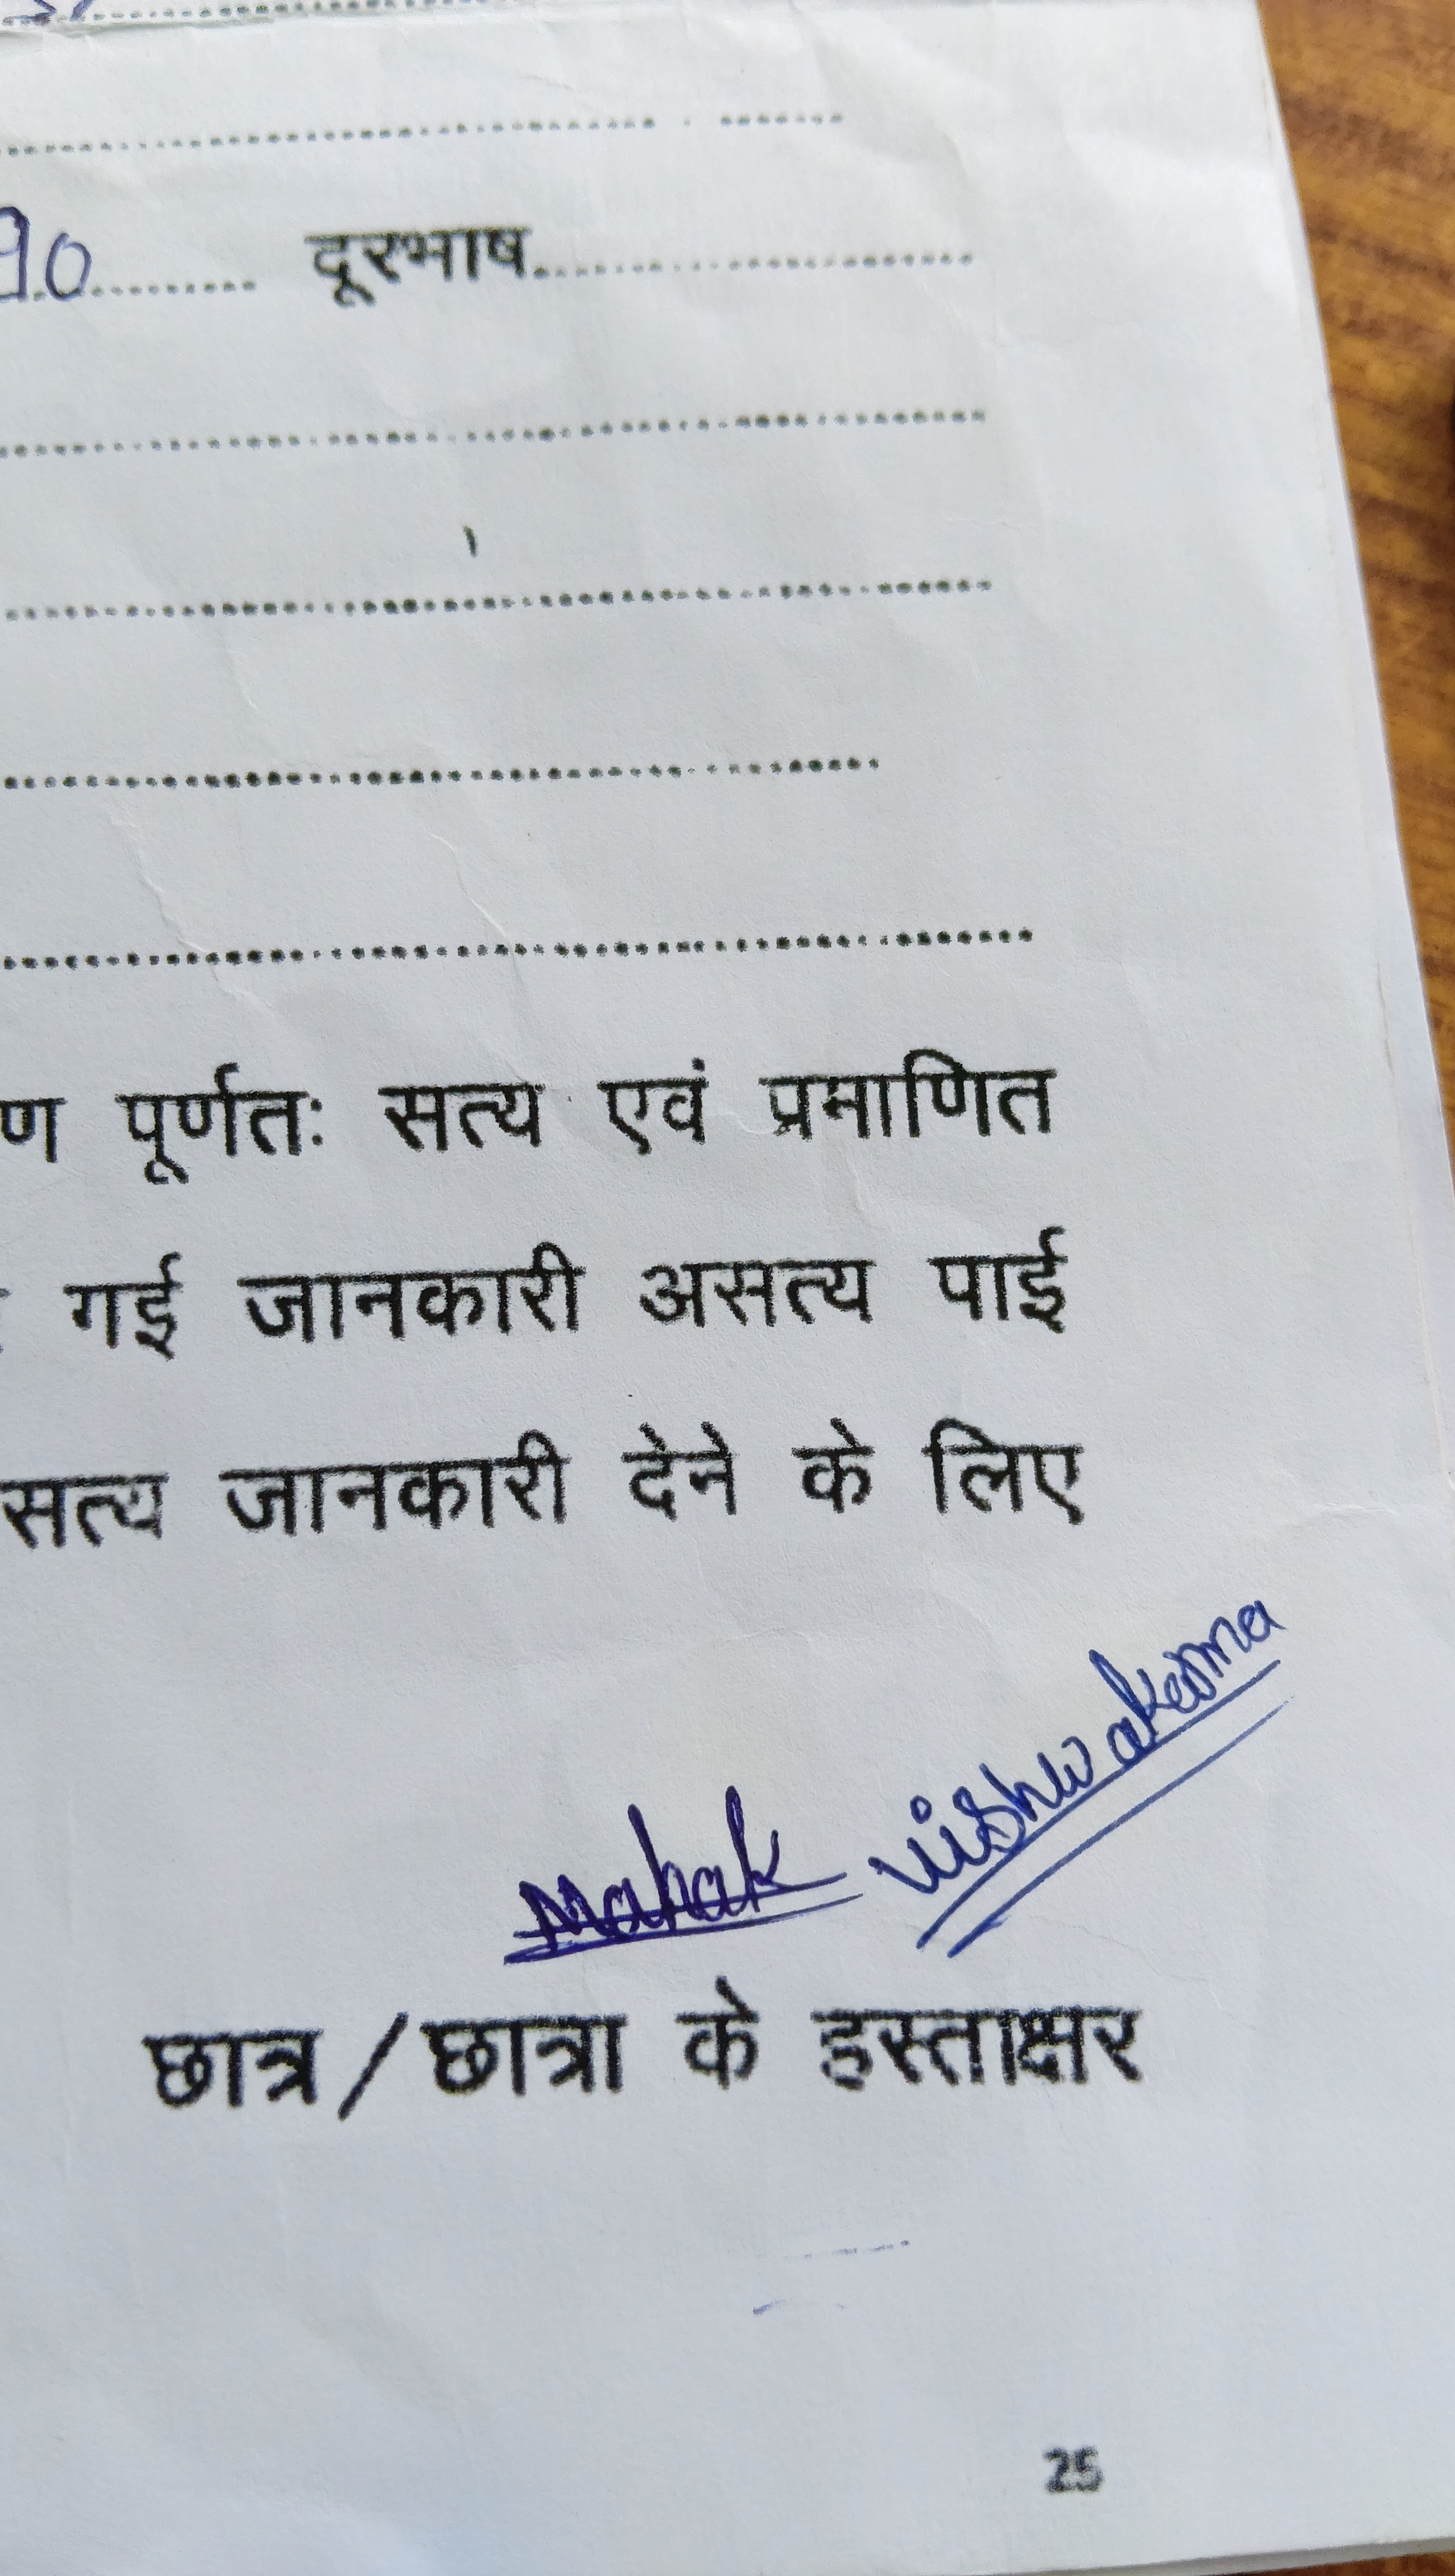 90 .......... दूरभाष..............................
ण पूर्णतः सत्य एवं प्रमाणित
गई जानकारी असत्य पाई
सत्य जानकारी देने के लिए
Mahak Viishwakarma
छात्र/छात्रा के हस्ताक्षर
25